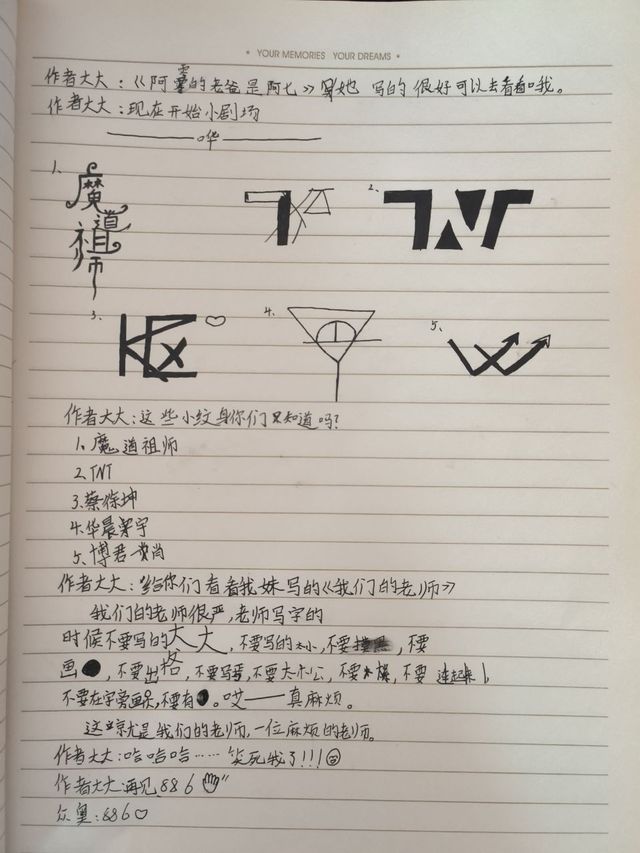 • YOUR MEMORIES YOUR DREAMS •
作者大大:《阿霎的老爸是阿七》 她 写的 很好可以去看看哦。
作者大大:现在开始小剧场
哗
1. 魔道祖师
2. TNT
3.
4.
5.
作者大大:这些小纹身你们只知道吗?
1. 魔道祖师
2. TNT
3. 蔡徐坤
4. 华晨宇
5. 博君一肖
作者大大:给你们看看我妹写的《我们的老师》
我们的老师很严,老师写字的
时候不要写的大大,不要写的太小,不要 ,不要
画●,不要出格,不要写歪,不要大小公,不要 ,不要连起来,
不要在字旁画 ,不要有●。哎——真麻烦。
这就是我们的老师,一位麻烦的老师。
作者大大:哈哈哈……笑死我了!!!
作者大大:再见,886
众 :886♡